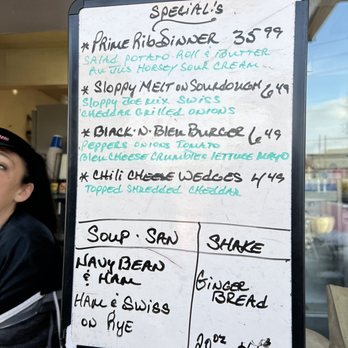 Special's
* Prime Rib Dinner 35.99
Salad Potato Roll & Butter
Au Jus Horsey Sour Cream...
* Sloppy Melt on Sourdough 6.49
Sloppy Joe Mix Swiss
Cheddar Grilled Onions
* Black·N·Bleu Burger 6.49
Peppers Onions Tomato
Bleu Cheese Crumbles Lettuce Mayo
* Chili Cheese Wedges 4.49
Topped Shredded Cheddar
Soup · San
Navy Bean
& Ham
Ham & Swiss
on Rye
Shake
Ginger
Bread
20oz